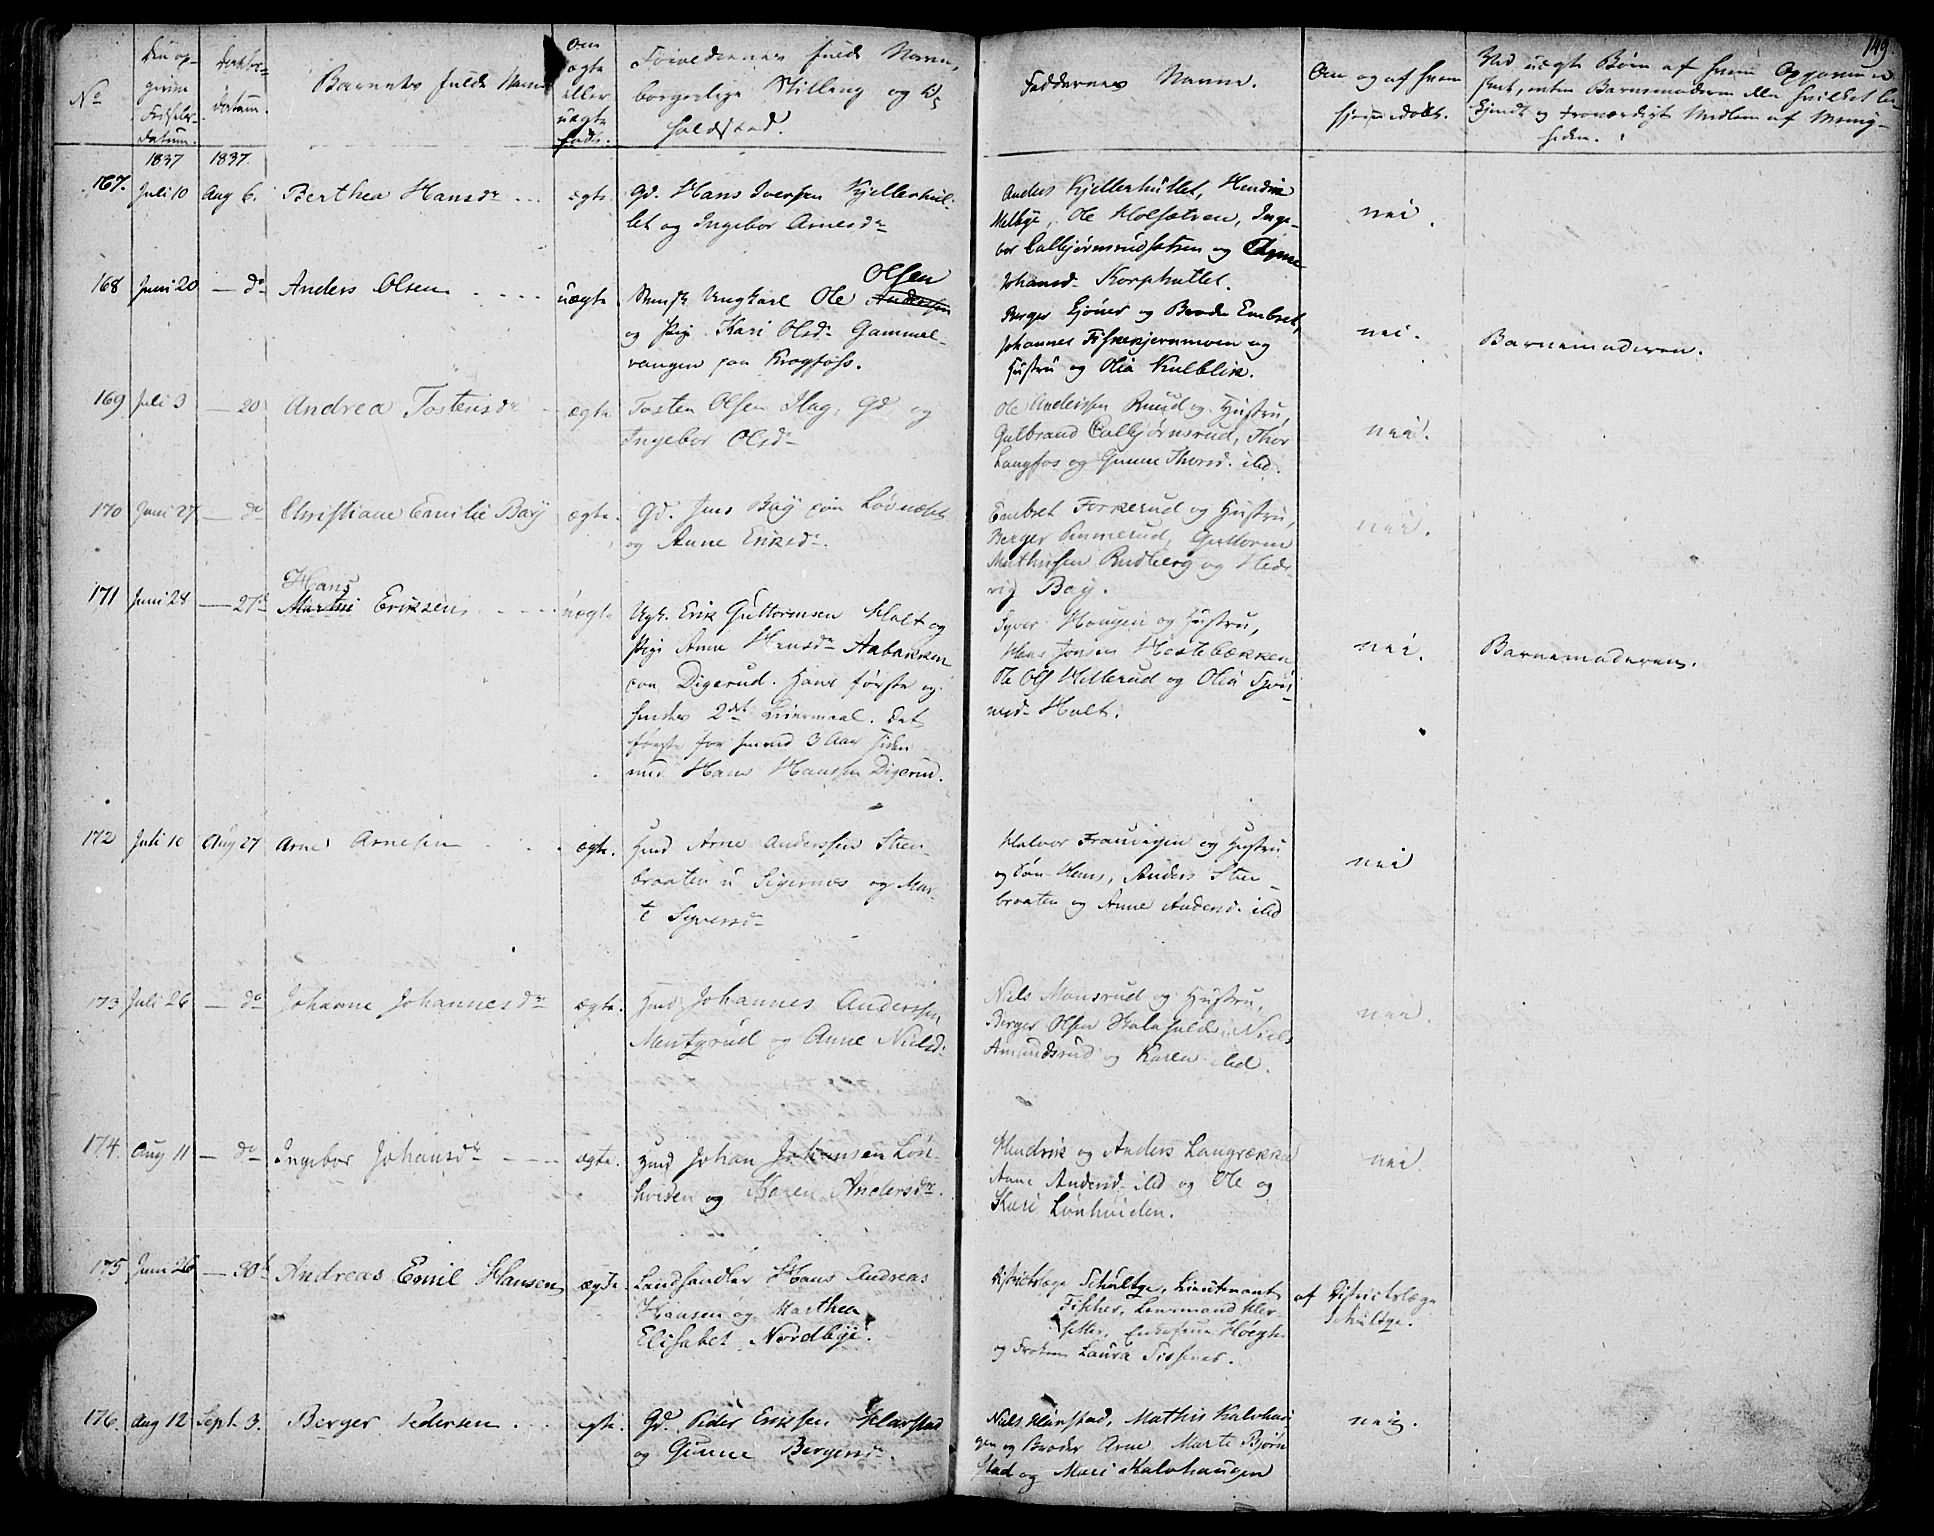 149.
No
Den op-
givne
Fødsels-
datum.
Daabs-
datum.
Barnets fulde Navn
Om
ægte
eller
uægte
født.
Forældrenes fulde Navne,
borgerlige Stilling og Op-
holdssted.
Faddernes Navne.
Om og af hvem
hjemmedøbt.
Ved uægte Børn af hvem Opgaven er
skeet, enten Barnemoderen eller hvilket be-
kjendt og troværdigt Medlem af Menig-
heden.
1837 1837.
167. Juli 10 Aug 6. Berthea Hansdr ægte Gd. Hans Iversen Kjellerhul-
let og Ingebor Arnesdr
Anders Kjellerhullet, Hendrik
Melbye, Ole Holsætren, Inge-
bor Calbjørnsrudsætren og
Johansd. Korphullet.
nei.
168 Juni 20 — do Anders Olsen uægte Ungkarl Ole Andersen Olsen
og Pige Kari Olsdr Gammel-
vangen paa Kragfoss.
Berger og Broder Embret,
Johannes Fiskekjernmoen og
Hustru og Olia Kulblik.
nei. Barnemoderen.
169 Juli 3 — 20 Andrea Tostensdr ægte Tosten Olsen Gd. og
Ingebor Olsdr
Ole Anderssen Ruud og Hustru,
Gulbrand Calbjørnsrud, Thor
Langfos og Gunne Thorsd. ibd.
nei.
170 Juni 27 — do Christiane Emilie Bay ægte. Gd. Jens Bay paa Løvnæset
og Anne Eriksdr.
Embret Forkerud og Hustru,
Berger Pinnerud, Guttorm
Mathisen Rudberg og Hed-
vig Bay.
nei.
171 Juni 24 — 27d Hans
Martin Eriksen uægte Ugk. Erik Guttormsen Holt og
Pige Anne Hansdr Aabakken
paa Digerud. Hans første og
hendes 2det Leiermaal. Det
første for hende 3 Aar siden
med Hans Hanssen Digerud.
Syver Haugen og Hustru,
Hans Jonsen Hestebækken
Ole Ols Hillerud og Olia
Holt.
nei. Barnemoderen.
172 Juli 10 Aug 27 Arne Arnesen ægte. Hmd Arne Anderssen Sten-
braaten u Sigernes og Mar-
te Syversdr
Halvor Fraudigen og Hustru
og Søn Hans, Anders Sten-
braaten og Anne Andersd. ibd
nei
173 Juli 26 — do Johanne Johannesdr ægte. Hmd Johannes Anderssen
Mentzrud og Anne Nielsd.
Niels Monsrud og Hustru,
Berger Olsen, Niels
Amundsrud og Karen ibd.
nei.
174. Aug 11 — do Ingebor Johansdr ægte. Hmd Johan Johansen Løn-
hviden og Karen Andersdr.
Hendrik og Anders Langrækka
Anne Andersd. ibd og Ole og
Kari Lønhviden.
nei
175 Juni 26 — 30t Andreas Emil Hansen ægte Landhandler Hans Andreas
Hansen og Marthea
Elisabet Nordbye.
Districtslæge Schultze, Lieutenant
Fischer, Lensmand Her-
setter, Enkefrue Høegh
og Frøken Laura.
af Districtslæge
Schultze.
176. Aug 12 Sept. 3. Berger Pedersen ægte. Gd. Peder Eriksen Harstad
og Gunne Bergersdr.
Niels Harstad, Mathis Kalvhau-
gen og Broder Arne, Marte Bjørn-
stad og Mari Kalvhaugen
nei.